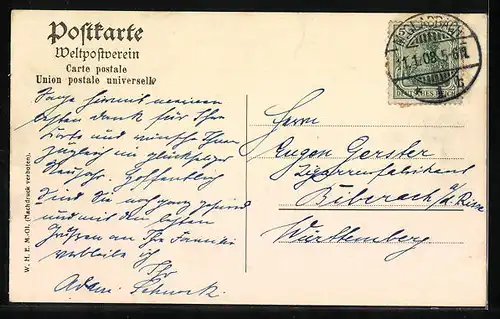 Postkarte
Weltpostverein
Carte postale
Union postale universelle
1.1.08 5-6N.
DEUTSCHES REICH
Sage hiermit meinen
besten Dank für Ihre
Karte und wünsche Ihnen
zugleich ein glückseliges
Neujahr. Hoffentlich
sind Sie noch ganz gesund
und mit den besten
Grüßen an Ihre Familie
verbleibe ich
Ihr
Adam
Herrn
Eugen Gerster
Zigarrenfabrikant
Biberach a/d. Riss
Württemberg
W. H. E. M.-Gl. (Nachdruck verboten).